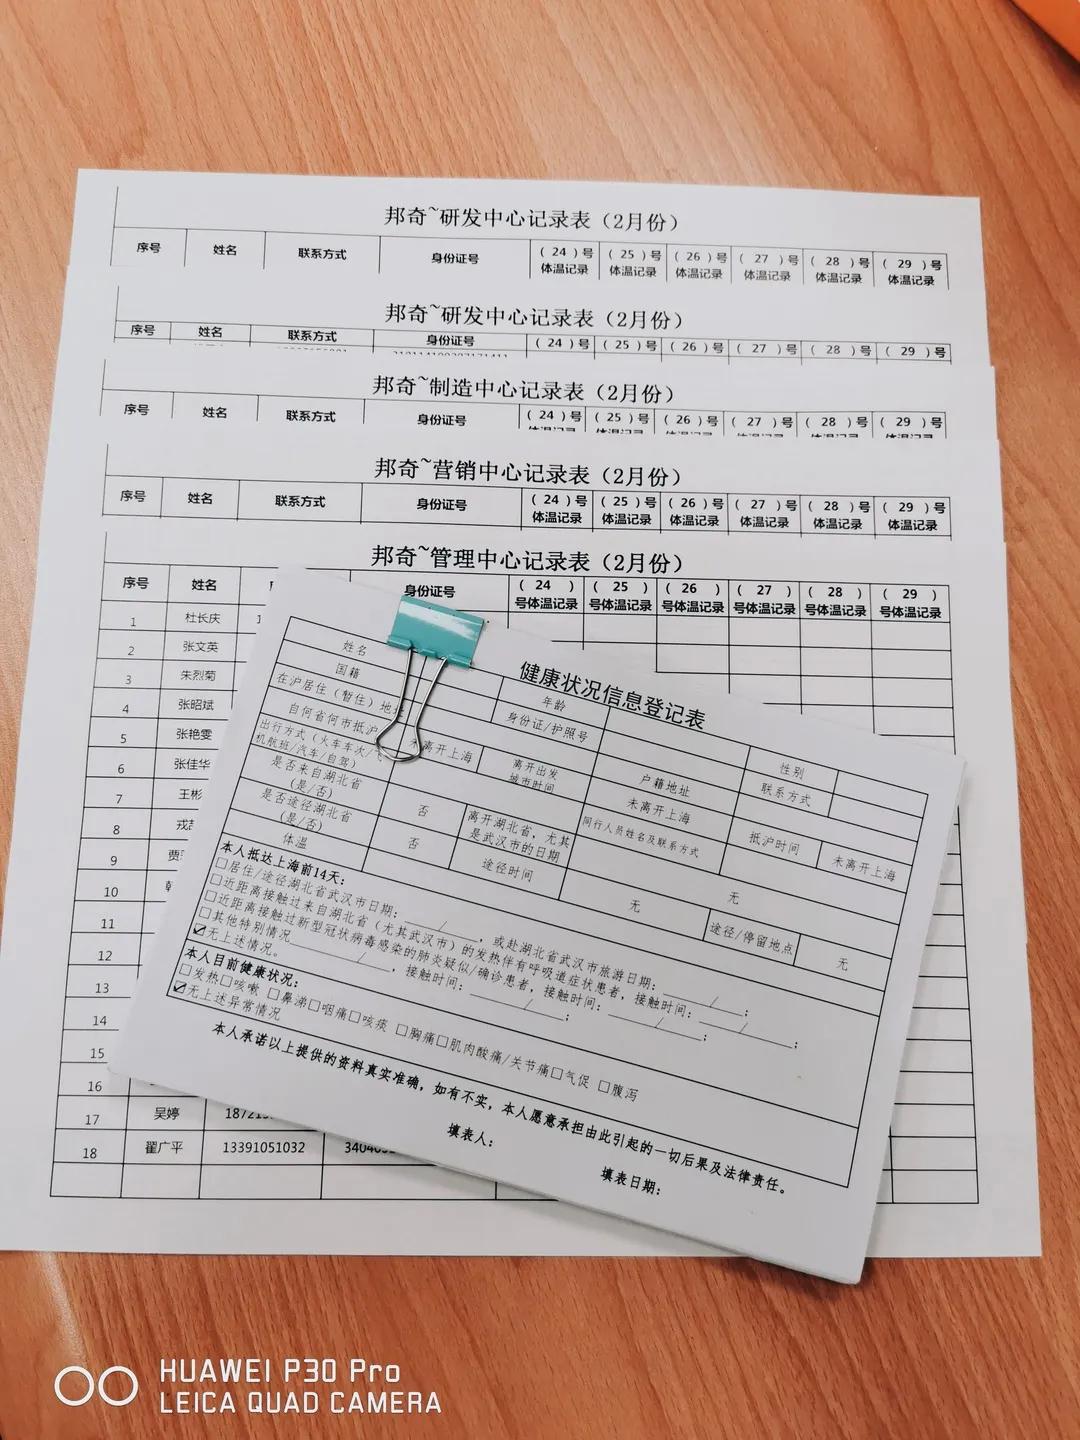 邦奇~研发中心记录表（2月份）
序号 姓名 联系方式 身份证号 （ 24 ）号 （ 25 ）号 （ 26 ）号 （ 27 ）号 （ 28 ）号 （ 29 ）号
体温记录 体温记录 体温记录 体温记录 体温记录 体温记录
邦奇~研发中心记录表（2月份）
序号 姓名 联系方式 身份证号 （ 24 ）号 （ 25 ）号 （ 26 ）号 （ 27 ）号 （ 28 ）号 （ 29 ）号
邦奇~制造中心记录表（2月份）
序号 姓名 联系方式 身份证号 （ 24 ）号 （ 25 ）号 （ 26 ）号 （ 27 ）号 （ 28 ）号 （ 29 ）号
邦奇~营销中心记录表（2月份）
序号 姓名 联系方式 身份证号 （ 24 ）号 （ 25 ）号 （ 26 ）号 （ 27 ）号 （ 28 ）号 （ 29 ）号
体温记录 体温记录 体温记录 体温记录 体温记录 体温记录
邦奇~管理中心记录表（2月份）
序号 姓名 身份证号 （ 24 ） （ 25 ） （ 26 ） （ 27 ） （ 28 ） （ 29 ）
号体温记录 号体温记录 号体温记录 号体温记录 号体温记录 号体温记录
1 杜长庆
2 张文英
3 朱烈菊
4 张昭斌
5 张艳雯
6 张佳华
7 王彬
8
9
10
11
12
13
14
15
16
17 吴婷
18 翟广平 13391051032
健康状况信息登记表
姓名 年龄 性别
国籍 身份证/护照号 联系方式
在沪居住（暂住）地址 户籍地址
自何省何市抵沪 未离开上海 离开出发城市时间 未离开上海 抵沪时间 未离开上海
出行方式（火车车次/飞机航班/汽车/自驾） 同行人员姓名及联系方式 无
是否来自湖北省（是/否） 否 离开湖北省，尤其是武汉市的日期 无
是否途径湖北省（是/否） 否 途径时间 无 途径/停留地点 无
体温
本人抵达上海前14天：
□居住/途径湖北省武汉市日期：____/____，或赴湖北省武汉市旅游日期：____/____；
□近距离接触过来自湖北省（尤其武汉市）的发热伴有呼吸道症状患者，接触时间：____/____；
□近距离接触过新型冠状病毒感染的肺炎疑似/确诊患者，接触时间：____/____；
□其他特别情况____/____，接触时间：____/____；
☑无上述情况。
本人目前健康状况：
□发热□咳嗽 □鼻涕□咽痛□咳痰 □胸痛□肌肉酸痛/关节痛□气促 □腹泻
☑无上述异常情况
本人承诺以上提供的资料真实准确，如有不实，本人愿意承担由此引起的一切后果及法律责任。
填表人：
填表日期：
HUAWEI P30 Pro
LEICA QUAD CAMERA